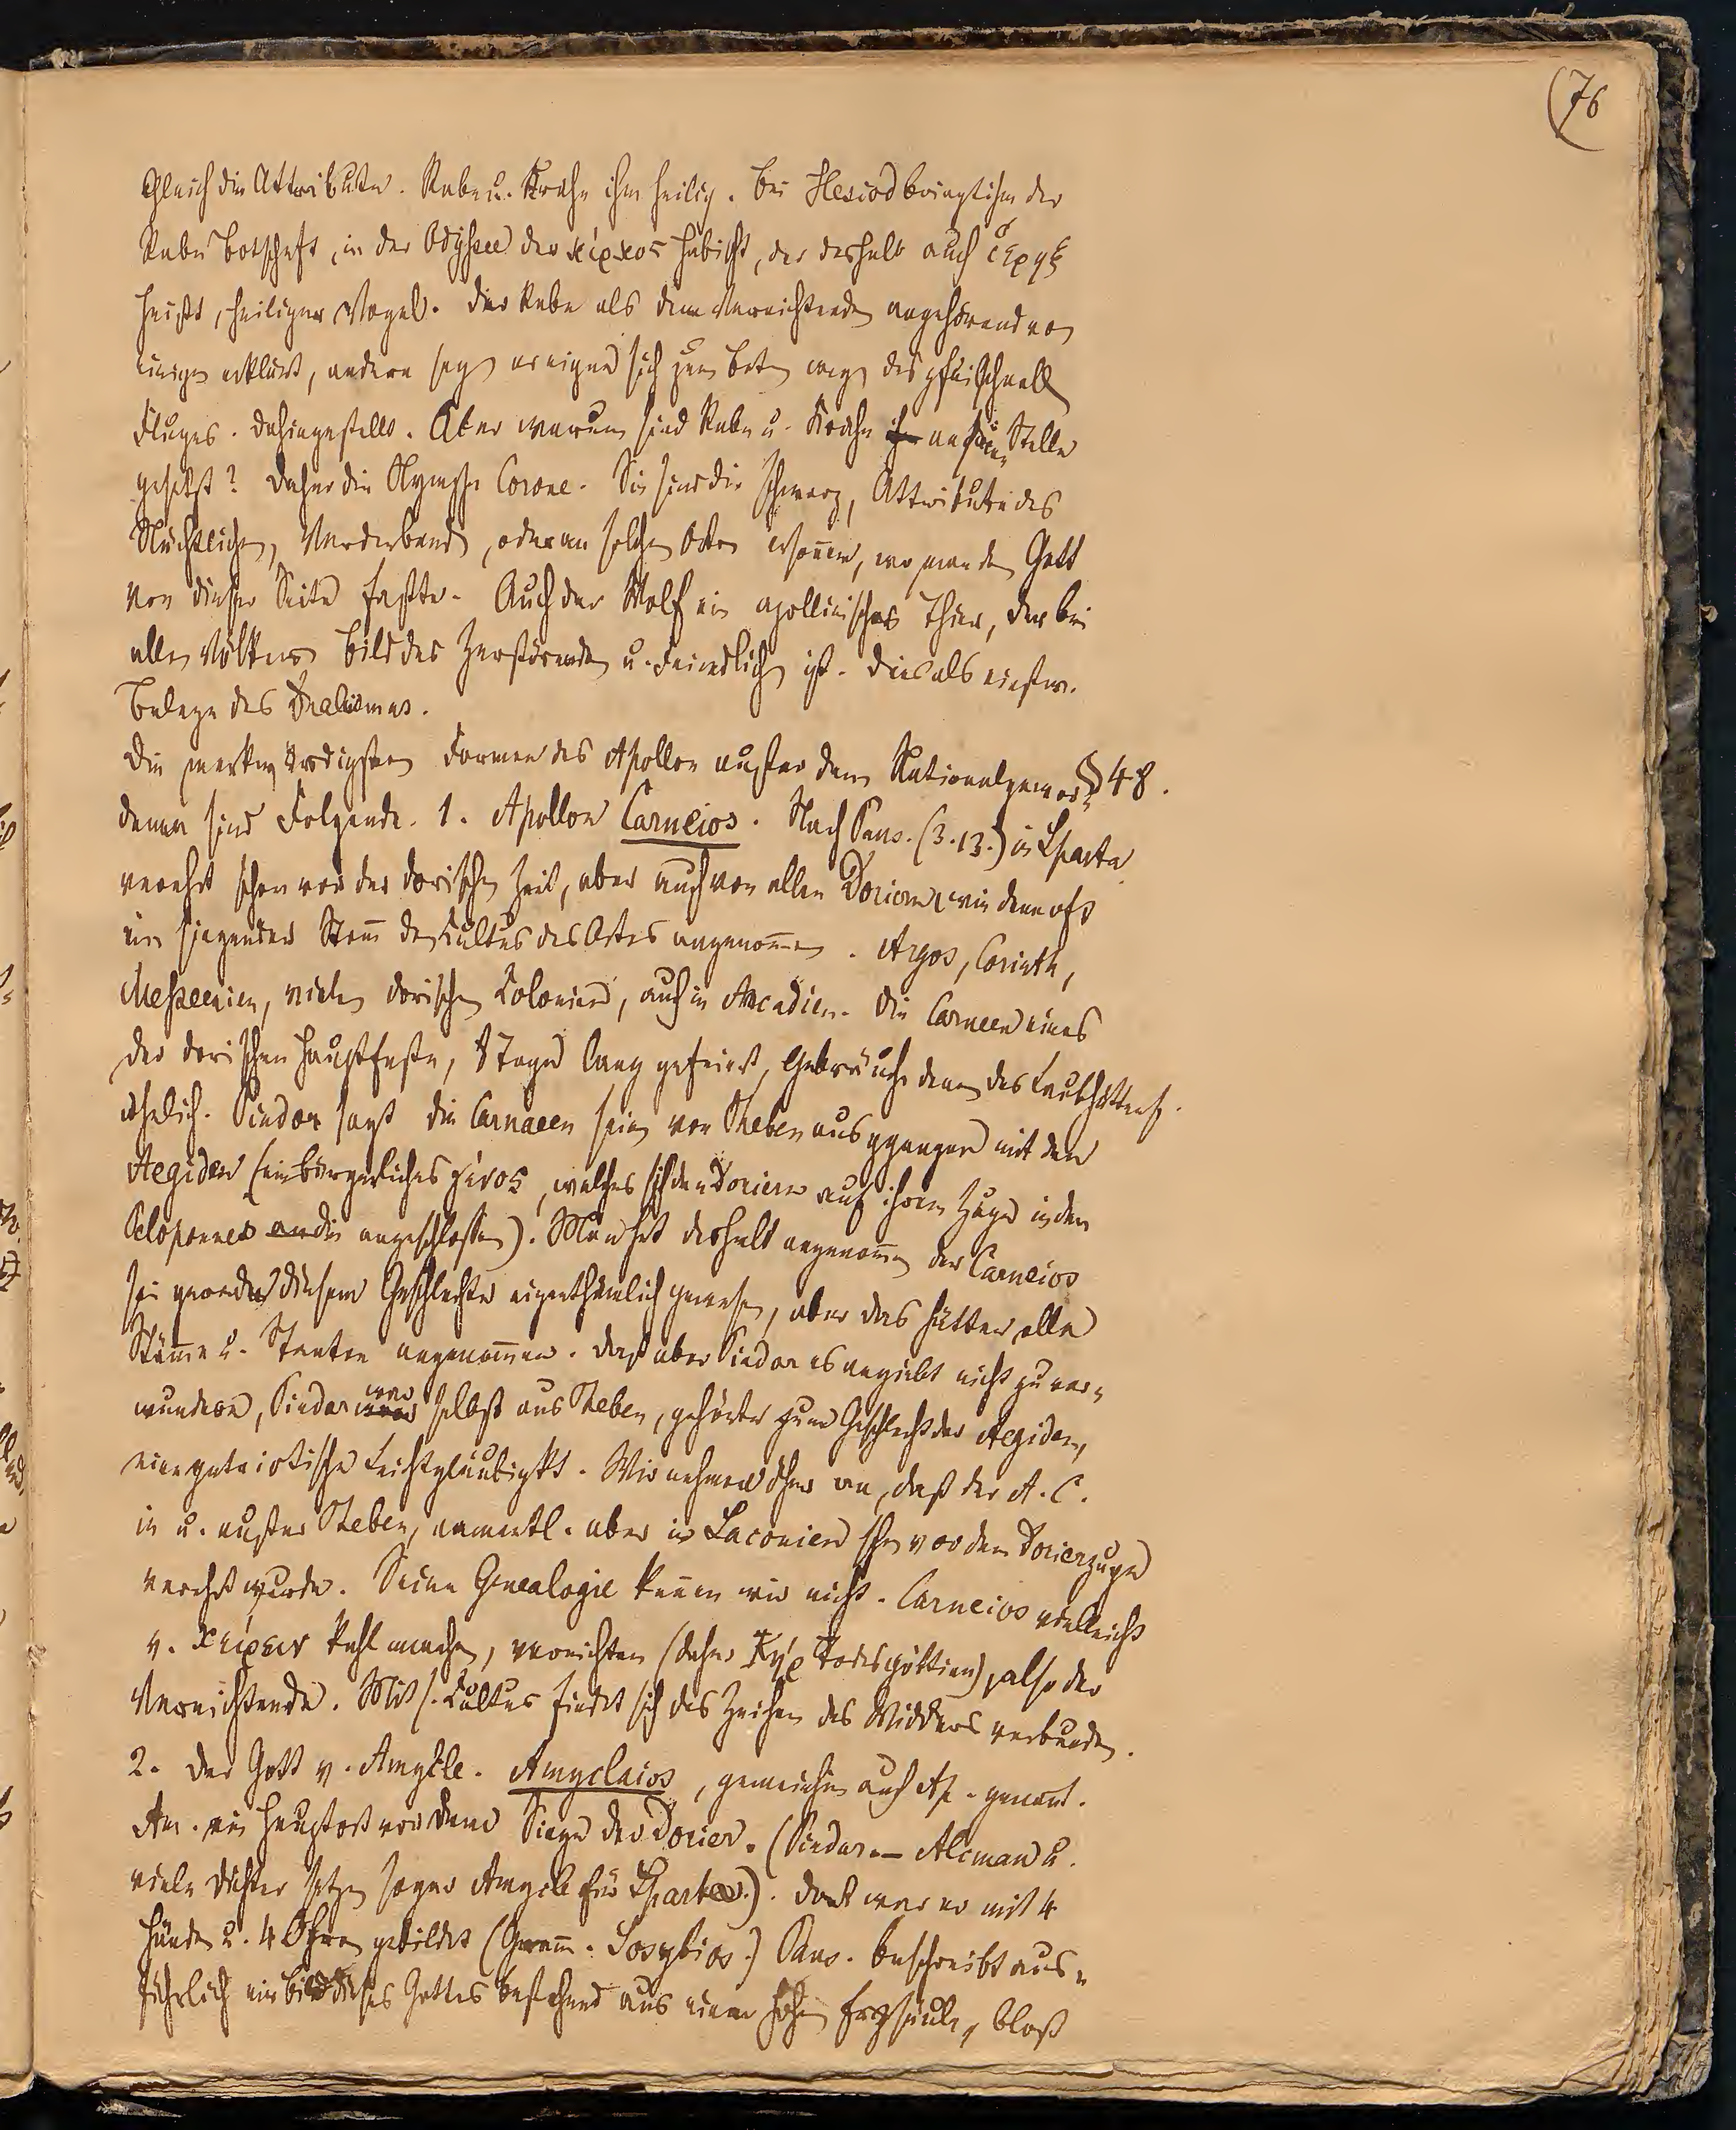 (76
Gleich die Attribute. Rabe u. Krähe ihm heilig. Bei Hesiod bringt ihm der
Rabe Botschaft, in der Odyssee der κίρκος Habicht, der deshalb auch ἱέραξ
heißt, heiliger Vogel. Der Rabe als dem Vernichtenden angehörend von
einigen erklärt, andere sagen er eigne sich zum Boten wegen des pfeilschnellen
Fluges. Dahingestellt. Aber warum sind Rabe u. Krähe an seine Stelle
gesetzt? Daher die Nymphe Corone. Sie sind die schwarzen, Attribute des
Nächtlichen, Verderbenden, oder an solchen Orten ersonnen, wo man den Gott
von dieser Seite faßte. Auch der Wolf ein apollinisches Thier, der bei
allen Völkern Bild des Zerstörenden u. Feindlichen ist. Dies als einstw.
Belege des Dualismus.
Die merkwürdigsten Formen des Apollon außer dem Nationalgewor- § 48.
denen sind Folgende. 1. Apollon Carneios. Nach Paus. (3.13.) in Sparta
verehrt schon vor der dorischen Zeit, aber auch von allen Doriern wie denn oft
ein siegender Stam̄ den Cultus des Ortes angenom̄en. Argos, Corinth,
Messenien, vielen dorischen Colonien, auch in Arcadien. Die Carneen eines
der dorischen Hauptfeste, 9 Tage lang gefeiert, Gebräuche denen des Laubhüttenf.
ähnlich. Pindar sagt die Carneen seien von Theben ausgegangen mit den
Aegiden (ein bürgerliches γένος, welches sich den Doriern auf ihrem Zuge in den
Peloponnes angeschlossen). Man hat deshalb angenom̄en der Carneios
sei gerade diesem Geschlechte eigenthümlich gewesen, aber das hätten alle
Stäm̄e u. Staaten angenommen. Daß aber Pindar es angiebt nicht zu ver-
wundern, Pindar war selbst aus Theben, gehörte zum Geschlecht der Aegiden,
eine patriotische Leichtgläubigkt. Wir nehmen daher an, daß der A. C.
in u. außer Theben, namentl. aber in Laconien schon vor dem Dorierzuge
verehrt wurde. Seine Genealogie ken̄en wir nicht. Carneios vielleicht
v. κείρειν kahl machen, vernichten (daher Κήρ Todesgöttin), also der
Vernichtende. Mit s. Cultus findet sich das Zeichen des Widders verbunden.
2. Der Gott v. Amyclae. Amyclaios, gemeinhin auch Ap. genan̄t.
Am. ein Hauptort vor dem Siege der Dorier. (Pindar — Alcman u.
viele Dichter setzen sogar Amyclae für Sparta.). Dort war er mit 4
Händen u. 4 Ohren gebildet (Gram̄. Sosybios.) Paus. beschreibt aus-
führlich ein Bild dieses Gottes bestehend aus einer hohen Erzsäule, bloß